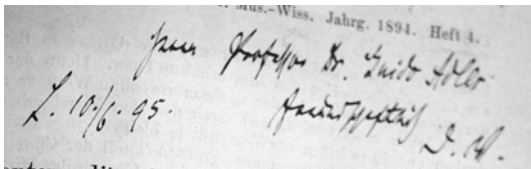 Mus.-Wiss. Jahrg. 1894. Heft 4.
Herrn Professor Dr. Guido Adler
freundschaftlich
L. 10./6. 95.
D. V.